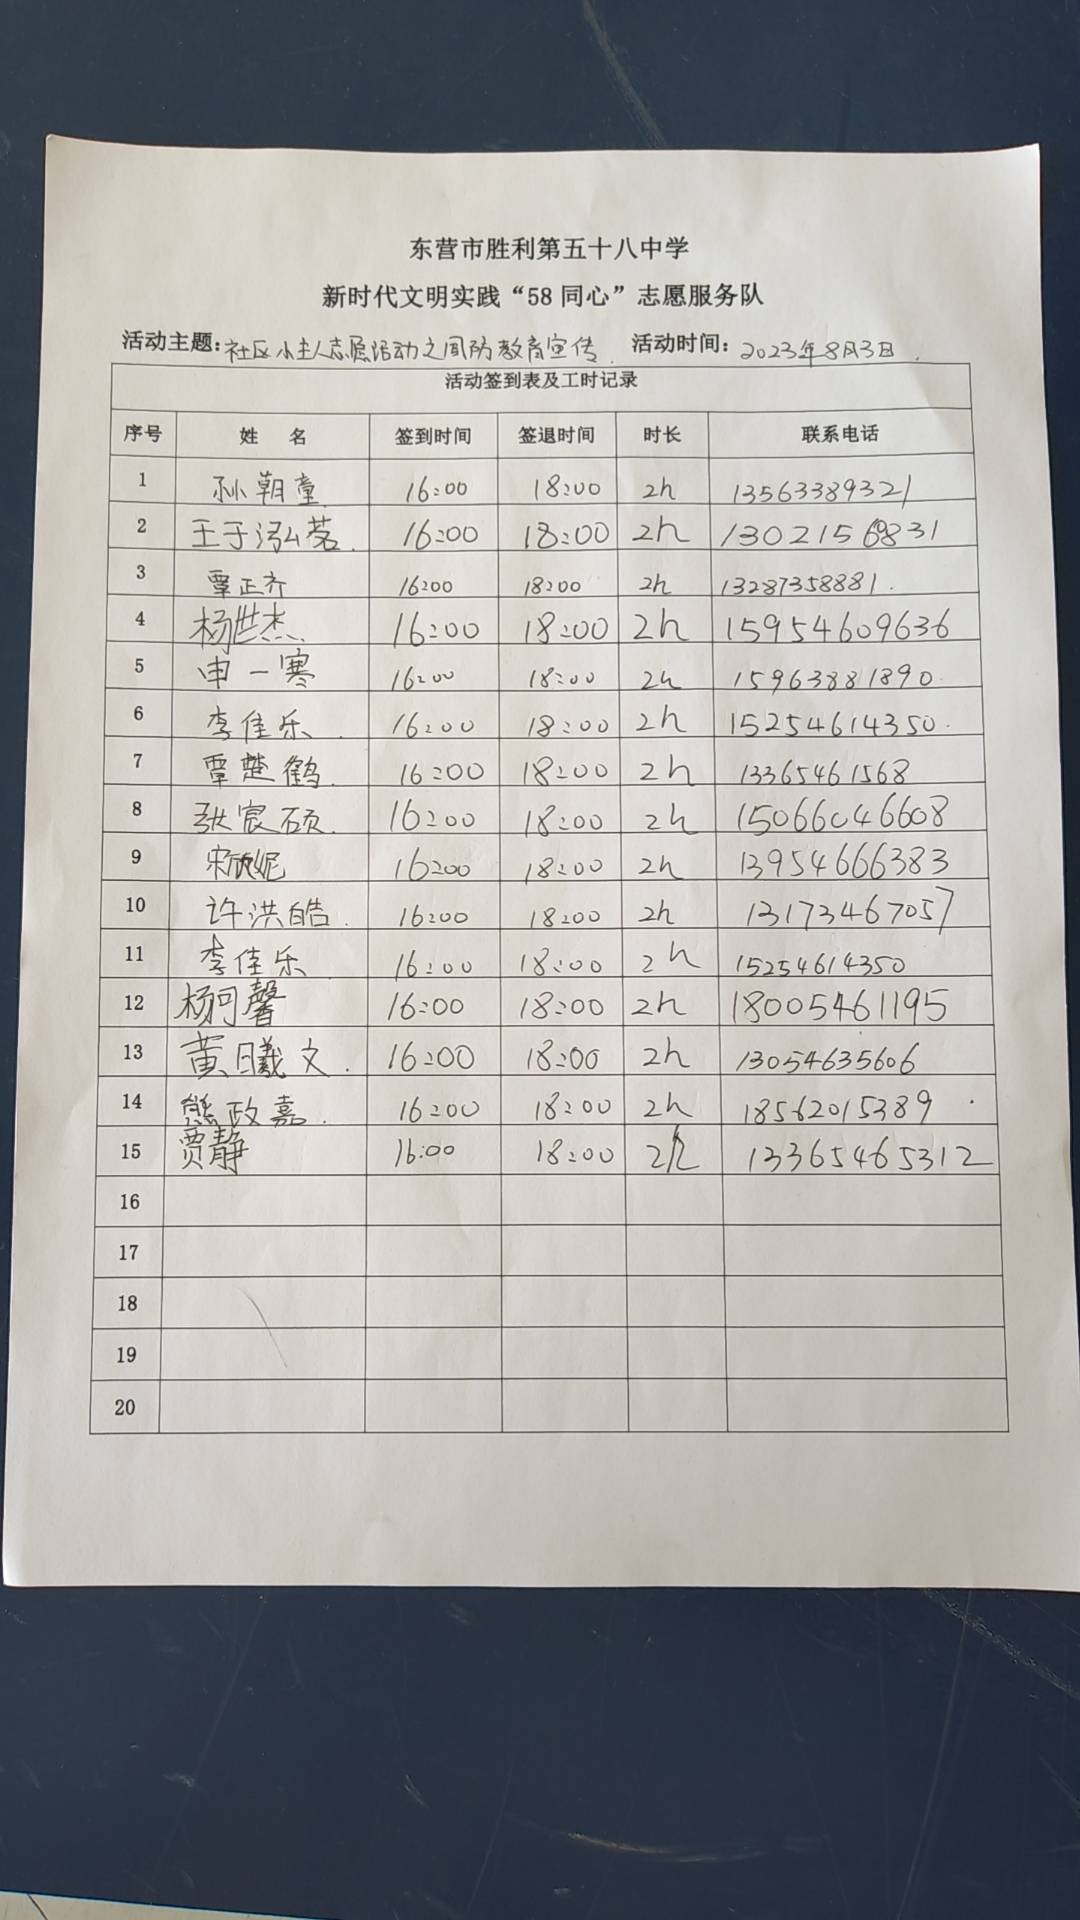 东营市胜利第五十八中学
新时代文明实践“58 同心”志愿服务队
活动主题: 社区小主人志愿活动之国防教育宣传. 活动时间: 2023年8月3日.
活动签到表及工时记录
序号 姓 名 签到时间 签退时间 时长 联系电话
1 孙朝童 16:00 18:00 2h 13563389321
2 王于泓茗. 16:00 18:00 2h 13021568831
3 覃正齐 16:00 18:00 2h 13287358881.
4 杨世杰 16:00 18:00 2h 15954609636
5 申一寒 16:00 18:00 2h 15963881890.
6 李佳乐. 16:00 18:00 2h 15254614350.
7 覃楚鹤. 16:00 18:00 2h 13365461568
8 张宸硕. 16:00 18:00 2h 15066046608
9 宋欣妮 16:00 18:00 2h 13954666383
10 许洪皓. 16:00 18:00 2h 13173467057
11 李佳乐 16:00 18:00 2h 15254614350
12 杨可馨 16:00 18:00 2h 18005461195
13 黄曦文. 16:00 18:00 2h 13054635606
14 熊政嘉. 16:00 18:00 2h 18562015389
15 贾静 16:00 18:00 2h 13365465312
16
17
18
19
20